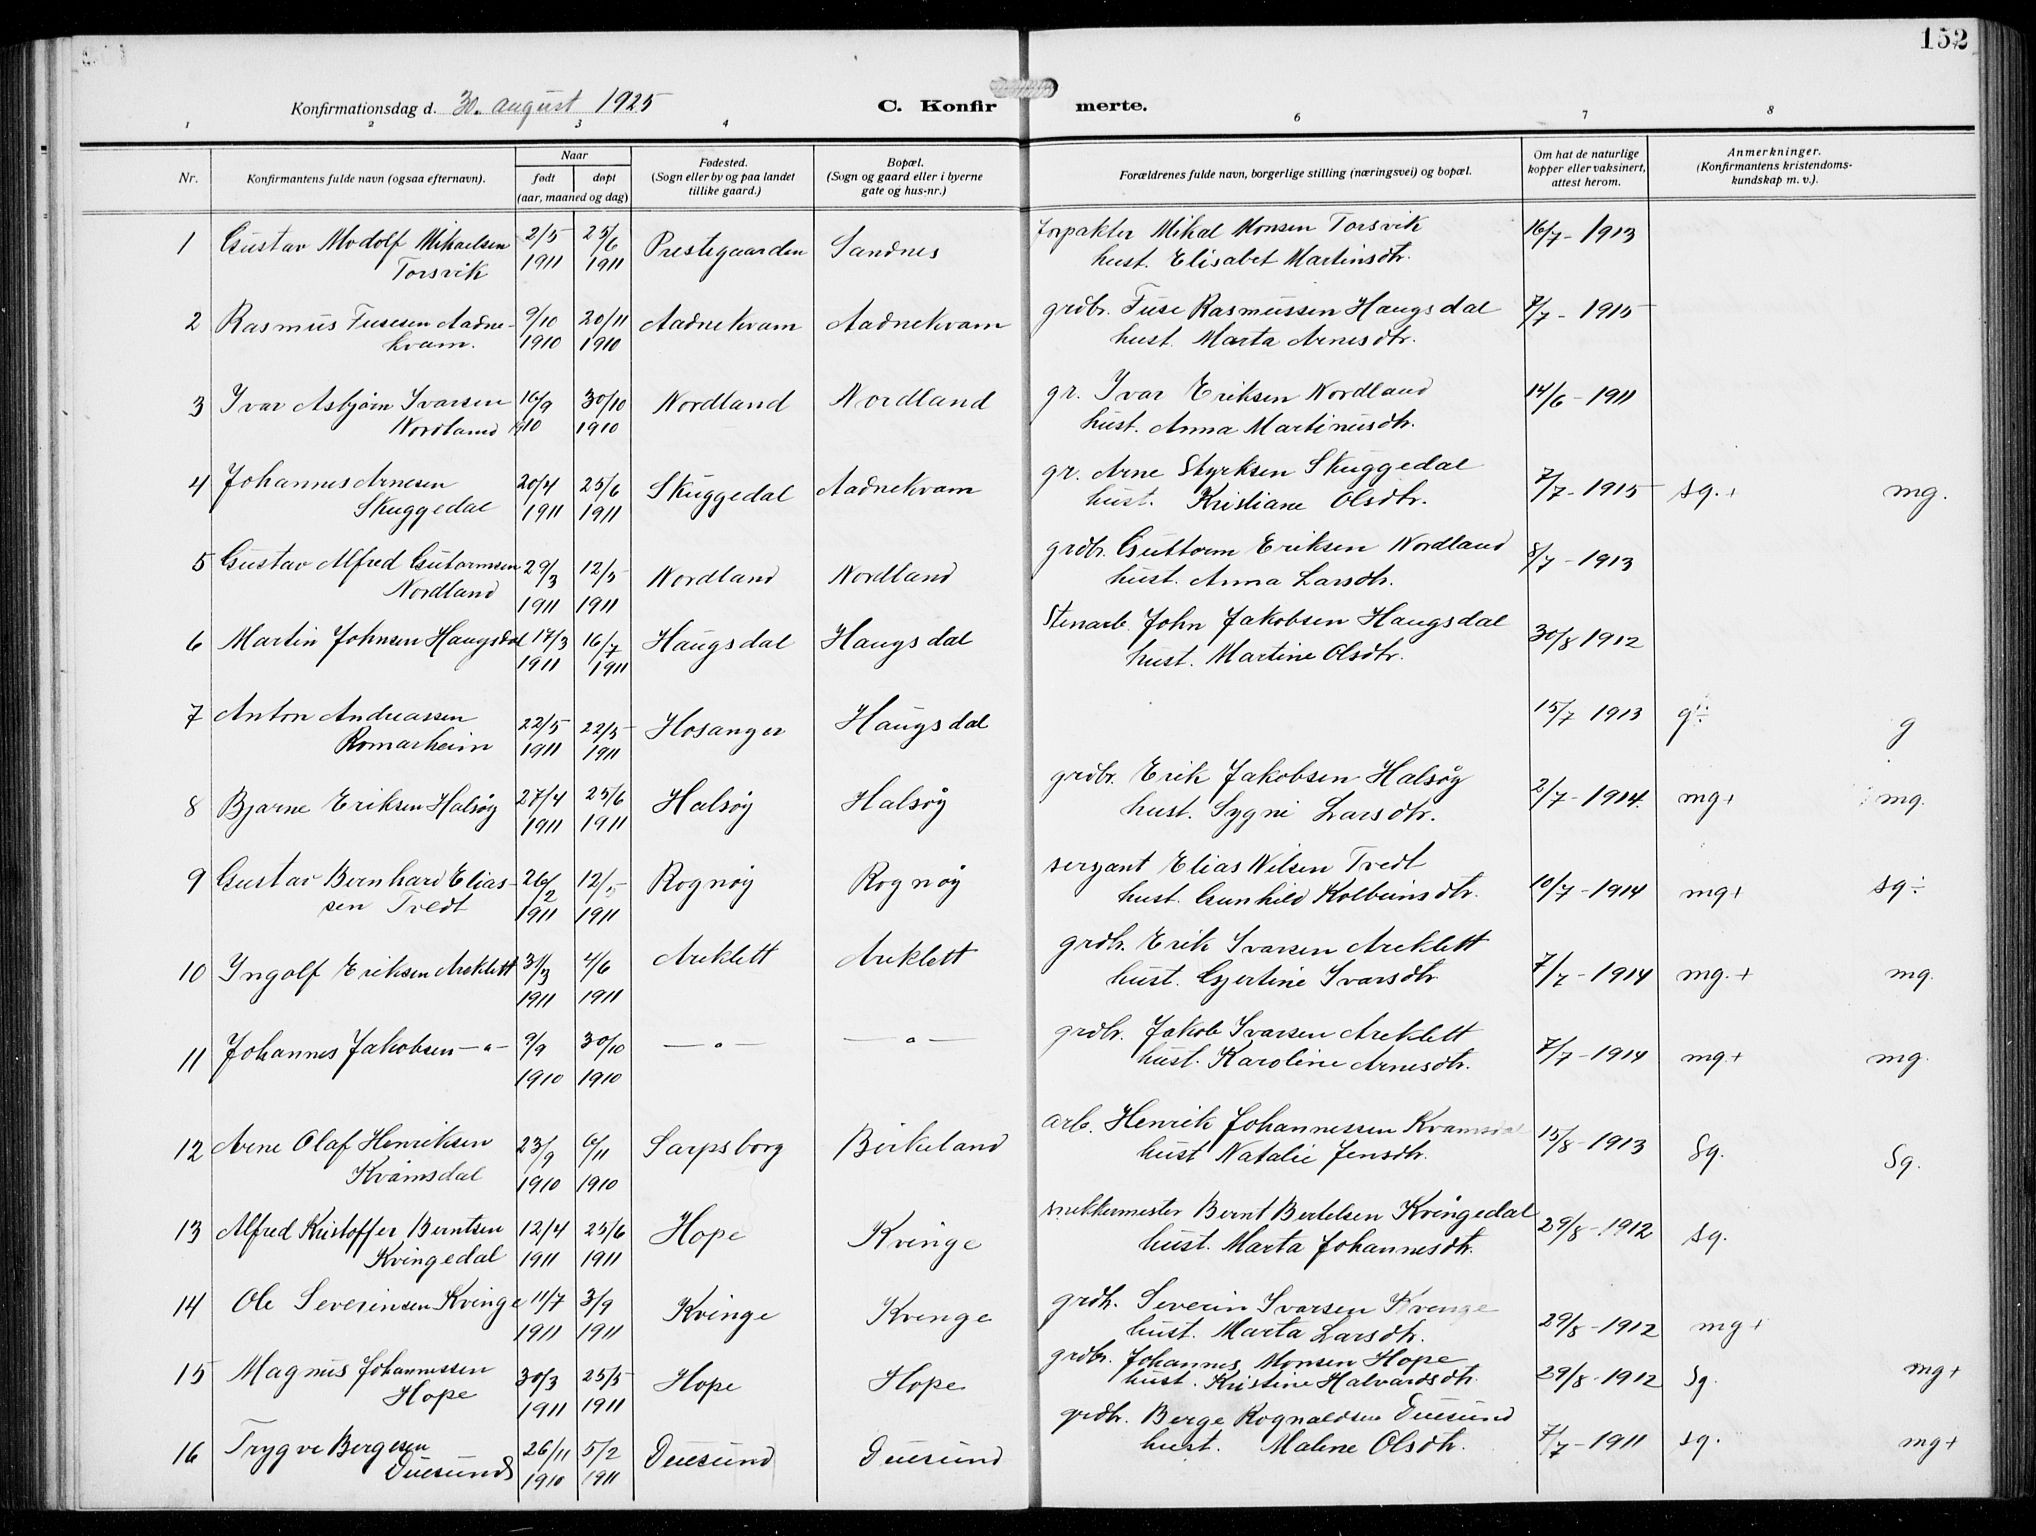 152
Konfirmationsdag d. 30. august 1925
C. Konfirmerte.
1 2 3 4 6 7 8
Nr.
Konfirmantens fulde navn (ogsaa efternavn).
Naar
født døpt
(aar, maaned og dag)
Fødested.
(Sogn eller by og paa landet
tillike gaard.)
Bopæl.
(Sogn og gaard eller i byerne
gate og hus-nr.)
Forældrenes fulde navn, borgerlige stilling (næringsvei) og bopæl.
Om hat de naturlige
kopper eller vaksinert,
attest herom.
Anmerkninger.
(Konfirmantens kristendoms-
kundskap m. v.).
1 Gustav Modolf Mikaelsen 2/5 25/6 Prestegaarden Sandnes Forpakter Mikal Monsen Torsvik 16/7 - 1913
Torsvik 1911 1911 hust. Elisabet Martinsdtr.
2 Rasmus Fusesen Aadne- 9/10 20/11 Aadnekvam Aadnekvam grdbr. Fuse Rasmussen Haugsdal 7/7 - 1915
kvam. 1910 1910 hust. Marta Arnesdtr.
3 Ivar Asbjørn Ivarsen 16/9 30/10 Nordland Nordland gr. Ivar Eriksen Nordland 14/6 - 1911
Nordland 1910 1910 hust. Anna Martinusdtr.
4 Johannes Arnesen 20/4 25/6 Skuggedal Aadnekvam gr. Arne Styrksen Skuggedal 7/7 - 1915 sg. + mg.
Skuggedal 1911 1911 hust. Kristiane Olsdtr.
5 Gustav Alfred Gutormsen 29/3 12/5 Nordland Nordland grdbr. Guttorm Eriksen Nordland 8/7 - 1913
Nordland 1911 1911 hust. Anna Larsdtr.
6 Martin Johnsen Haugsdal 17/3 16/7 Haugsdal Haugsdal Stenarb. John Jakobsen Haugsdal 30/8 1912
1911 1911 hust. Martine Olsdtr.
7 Anton Andreassen 22/5 22/5 Hosanger Haugsdal 15/7 1913 g÷ g
Romarheim 1911 1911
8 Bjarne Eriksen Halsøy 27/4 25/6 Halsøy Halsøy grdbr. Erik Jakobsen Halsøy 2/7 - 1914. mg+ mg.
1911 1911 hust. Sygni Larsdtr.
9 Gustav Bernhard Elias- 26/2 12/5 Rognøy Rognøy sersjant Elias Nilsen Tvedt 10/7 - 1914 mg+ sg÷
sen Tvedt 1911 1911 hust. Gunhild Kolbeinsdtr.
10 Ingolf Eriksen Areklett 31/3 4/6 Areklett Areklett grdbr. Erik Ivarsen Areklett 7/7 - 1914 mg. + mg.
1911 1911 hust. Gjertine Ivarsdtr
11 Johannes Jakobsen — " — 9/9 30/10 — " — — " — grdbr. Jakob Ivarsen Areklett 7/7 - 1914 mg+ mg.
1910 1910 hust. Karoline Arnesdtr.
12 Arne Olaf Henriksen 23/9 6/11 Sarpsborg Birkeland arb. Henrik Johannessen Kvamsdal 15/8 - 1913 Sg. Sg.
Kvamsdal 1910 1910 hust Natalie Jensdtr.
13 Alfred Kristoffer Berntsen 12/4 25/6 Hope Kvinge snekkermester Bernt Bertelsen Kvingedal 29/8 - 1912 sg.
Kvingedal 1911 1911 hust. Marta Johannesdtr.
14 Ole Severinsen Kvinge 11/7 3/9 Kvinge Kvinge grdbr. Severin Ivarsen Kvinge 29/8 - 1912 mg+
1911 1911 hust. Marta Larsdtr.
15 Magnus Johannessen 30/3 25/5 Hope Hope grdbr. Johannes Monsen Hope 29/8 - 1912 Sg. mg+
Hope 1911 1911 hust. Kristine Halvardsdtr.
16 Trygve Bergesen 26/11 5/2 Duesund Duesund grdbr. Berge Rognaldsen Duesund 7/7 - 1911 sg. mg+
Duesund 1910 1911 hust. Malene Olsdtr.